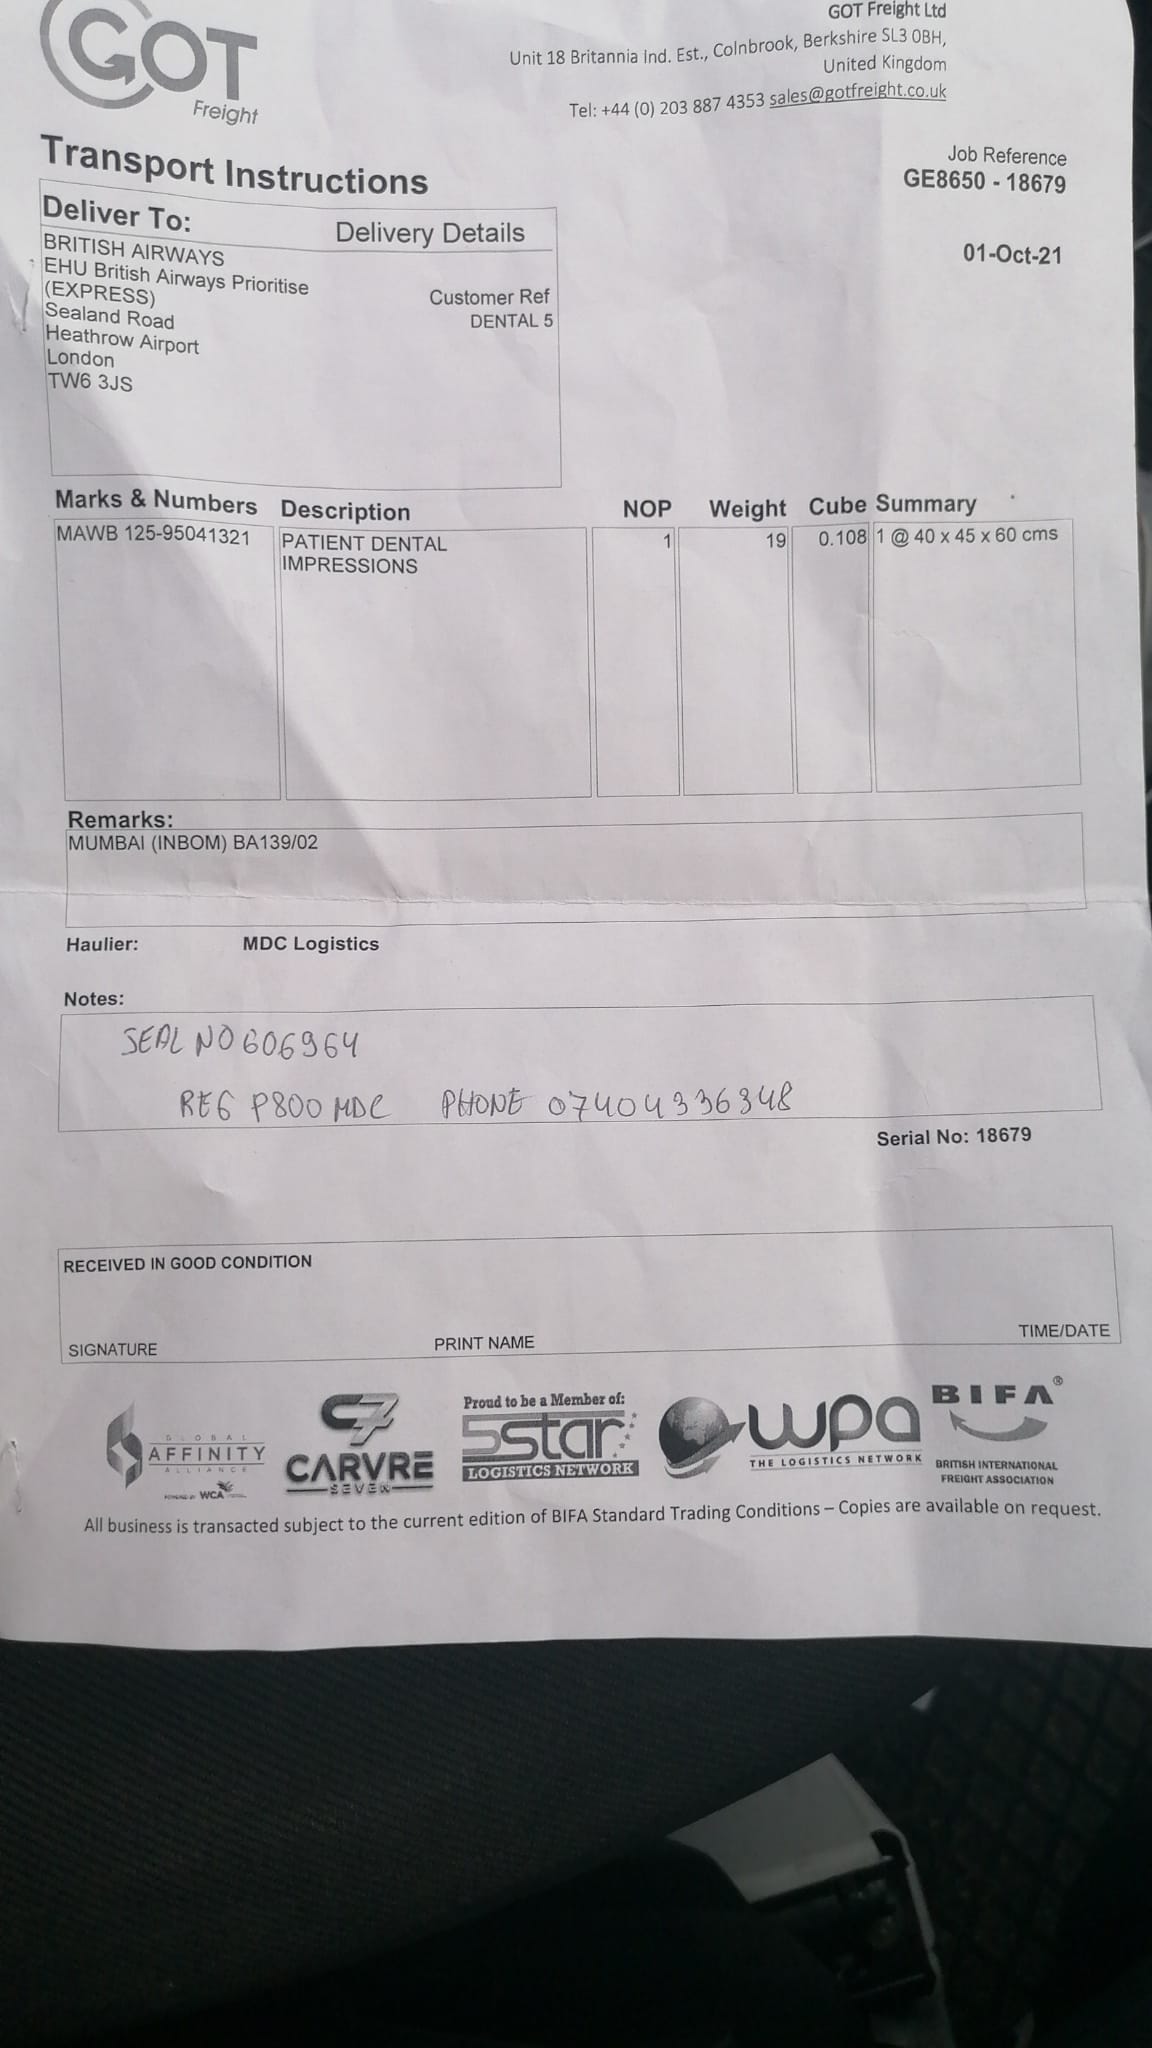 GOT
Freight
GOT Freight Ltd
Unit 18 Britannia Ind. Est., Colnbrook, Berkshire SL3 0BH,
United Kingdom
Tel: +44 (0) 203 887 4353 sales@gotfreight.co.uk
Transport Instructions
Job Reference
GE8650 - 18679
01-Oct-21
Deliver To:
BRITISH AIRWAYS
EHU British Airways Prioritise
(EXPRESS)
Sealand Road
Heathrow Airport
London
TW6 3JS
Delivery Details
Customer Ref
DENTAL 5
Marks & Numbers Description NOP Weight Cube Summary
MAWB 125-95041321 PATIENT DENTAL 1 19 0.108 1 @ 40 x 45 x 60 cms
IMPRESSIONS
Remarks:
MUMBAI (INBOM) BA139/02
Haulier: MDC Logistics
Notes:
SEAL NO 606964
REG P800 MDC PHONE 07404336348
Serial No: 18679
RECEIVED IN GOOD CONDITION
SIGNATURE PRINT NAME TIME/DATE
GLOBAL
AFFINITY
ALLIANCE
POWERED BY WCA
C7
CARVRE
SEVEN
Proud to be a Member of:
5star
LOGISTICS NETWORK
wpa
THE LOGISTICS NETWORK
BIFA®
BRITISH INTERNATIONAL
FREIGHT ASSOCIATION
All business is transacted subject to the current edition of BIFA Standard Trading Conditions – Copies are available on request.